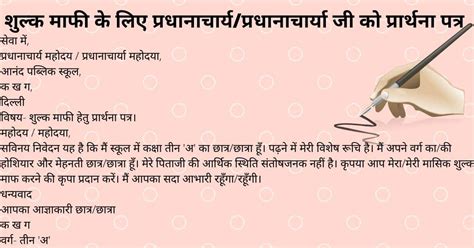 शुल्क माफी के लिए प्रधानाचार्य/प्रधानाचार्या जी को प्रार्थना पत्र
सेवा में,
प्रधानाचार्य महोदय / प्रधानाचार्या महोदया,
-आनंद पब्लिक स्कूल,
-क ख ग,
दिल्ली
विषय- शुल्क माफी हेतु प्रार्थना पत्र।
महोदय / महोदया,
-सविनय निवेदन यह है कि मैं स्कूल में कक्षा तीन 'अ' का छात्र/छात्रा हूँ। पढ़ने में मेरी विशेष रूचि है। मैं अपने वर्ग का/की
होशियार और मेहनती छात्र/छात्रा हूँ। मेरे पिताजी की आर्थिक स्थिति संतोषजनक नहीं है। कृपया आप मेरा/मेरी मासिक शुल्क
माफ करने की कृपा प्रदान करें। मैं आपका सदा आभारी रहूँगा/रहूँगी।
धन्यवाद
-आपका आज्ञाकारी छात्र/छात्रा
क ख ग
वर्ग- तीन 'अ'